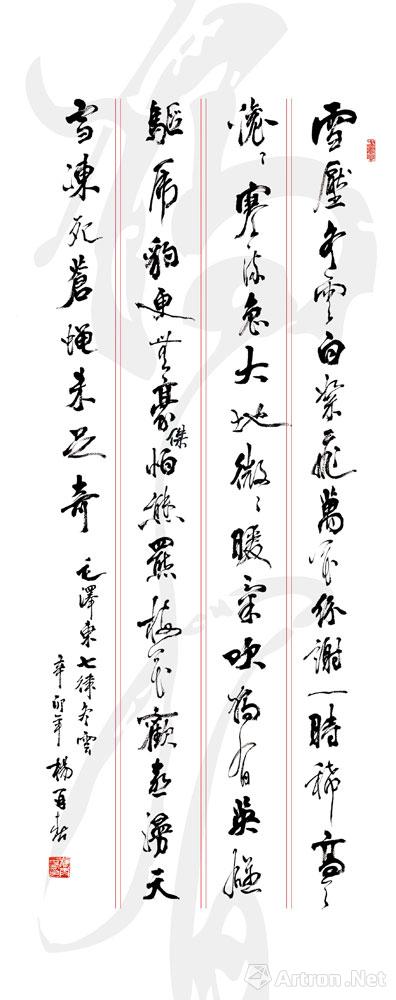 雪壓冬雲白絮飛萬花紛謝一時稀高天
滾〻寒流急大地微〻暖氣吹獨有英雄
驅虎豹更無豪傑怕熊羆梅花歡喜漫天
雪凍死蒼蠅未足奇
毛澤東七律冬雲
辛卯年楊再春
Artron.Net